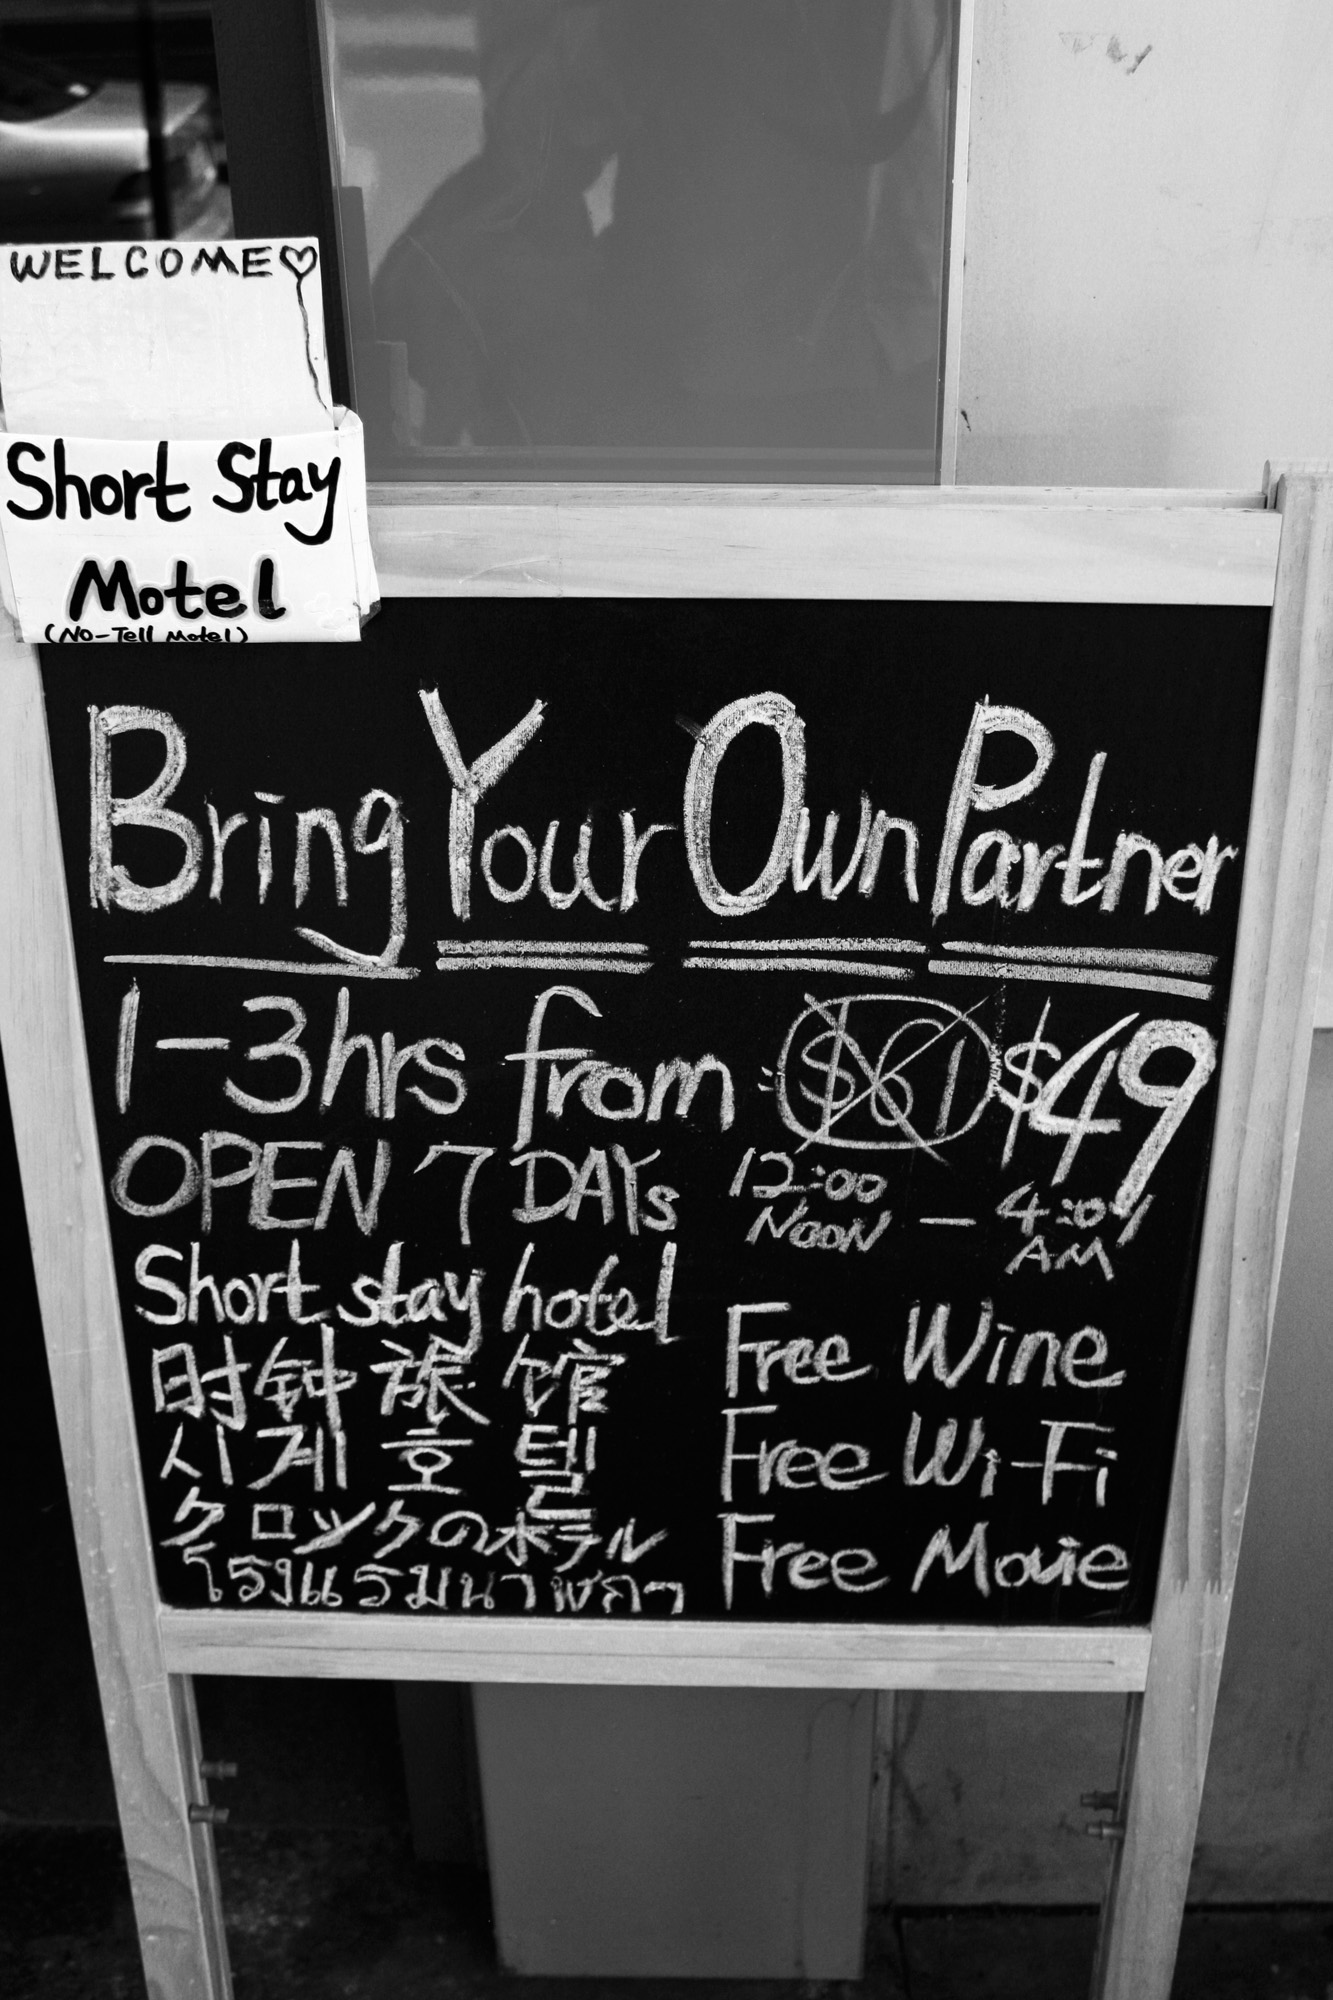 WELCOME♡
Short Stay
Motel
(No-Tell Motel)
Bring Your Own Partner
1-3hrs from $61 $49
OPEN 7 DAYs 12:00 NOON - 4:00 AM
Short stay hotel
时钟旅馆
시계 호텔
クロックのホテル
โรงแรมนาฬิกา
Free Wine
Free Wi-Fi
Free Movie